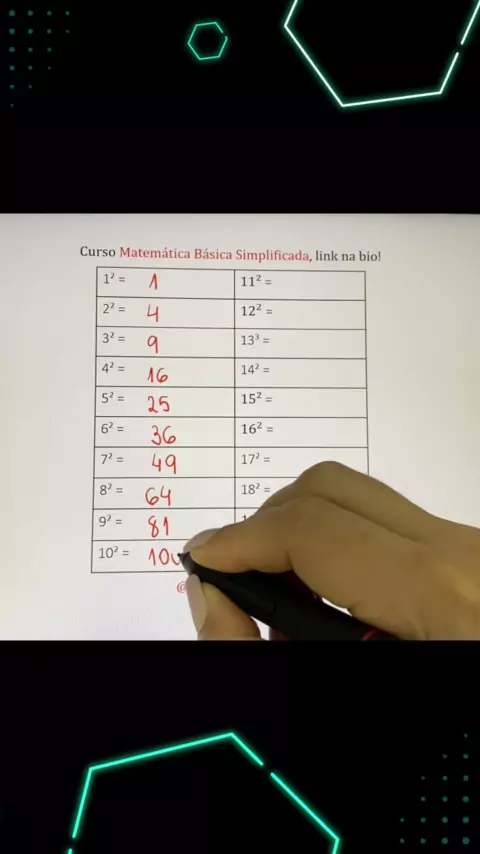 Curso Matemática Básica Simplificada, link na bio!
1² = 1
11² =
2² = 4
12² =
3² = 9
13³ =
4² = 16
14² =
5² = 25
15² =
6² = 36
16² =
7² = 49
17² =
8² = 64
18² =
9² = 81
10² = 100
@